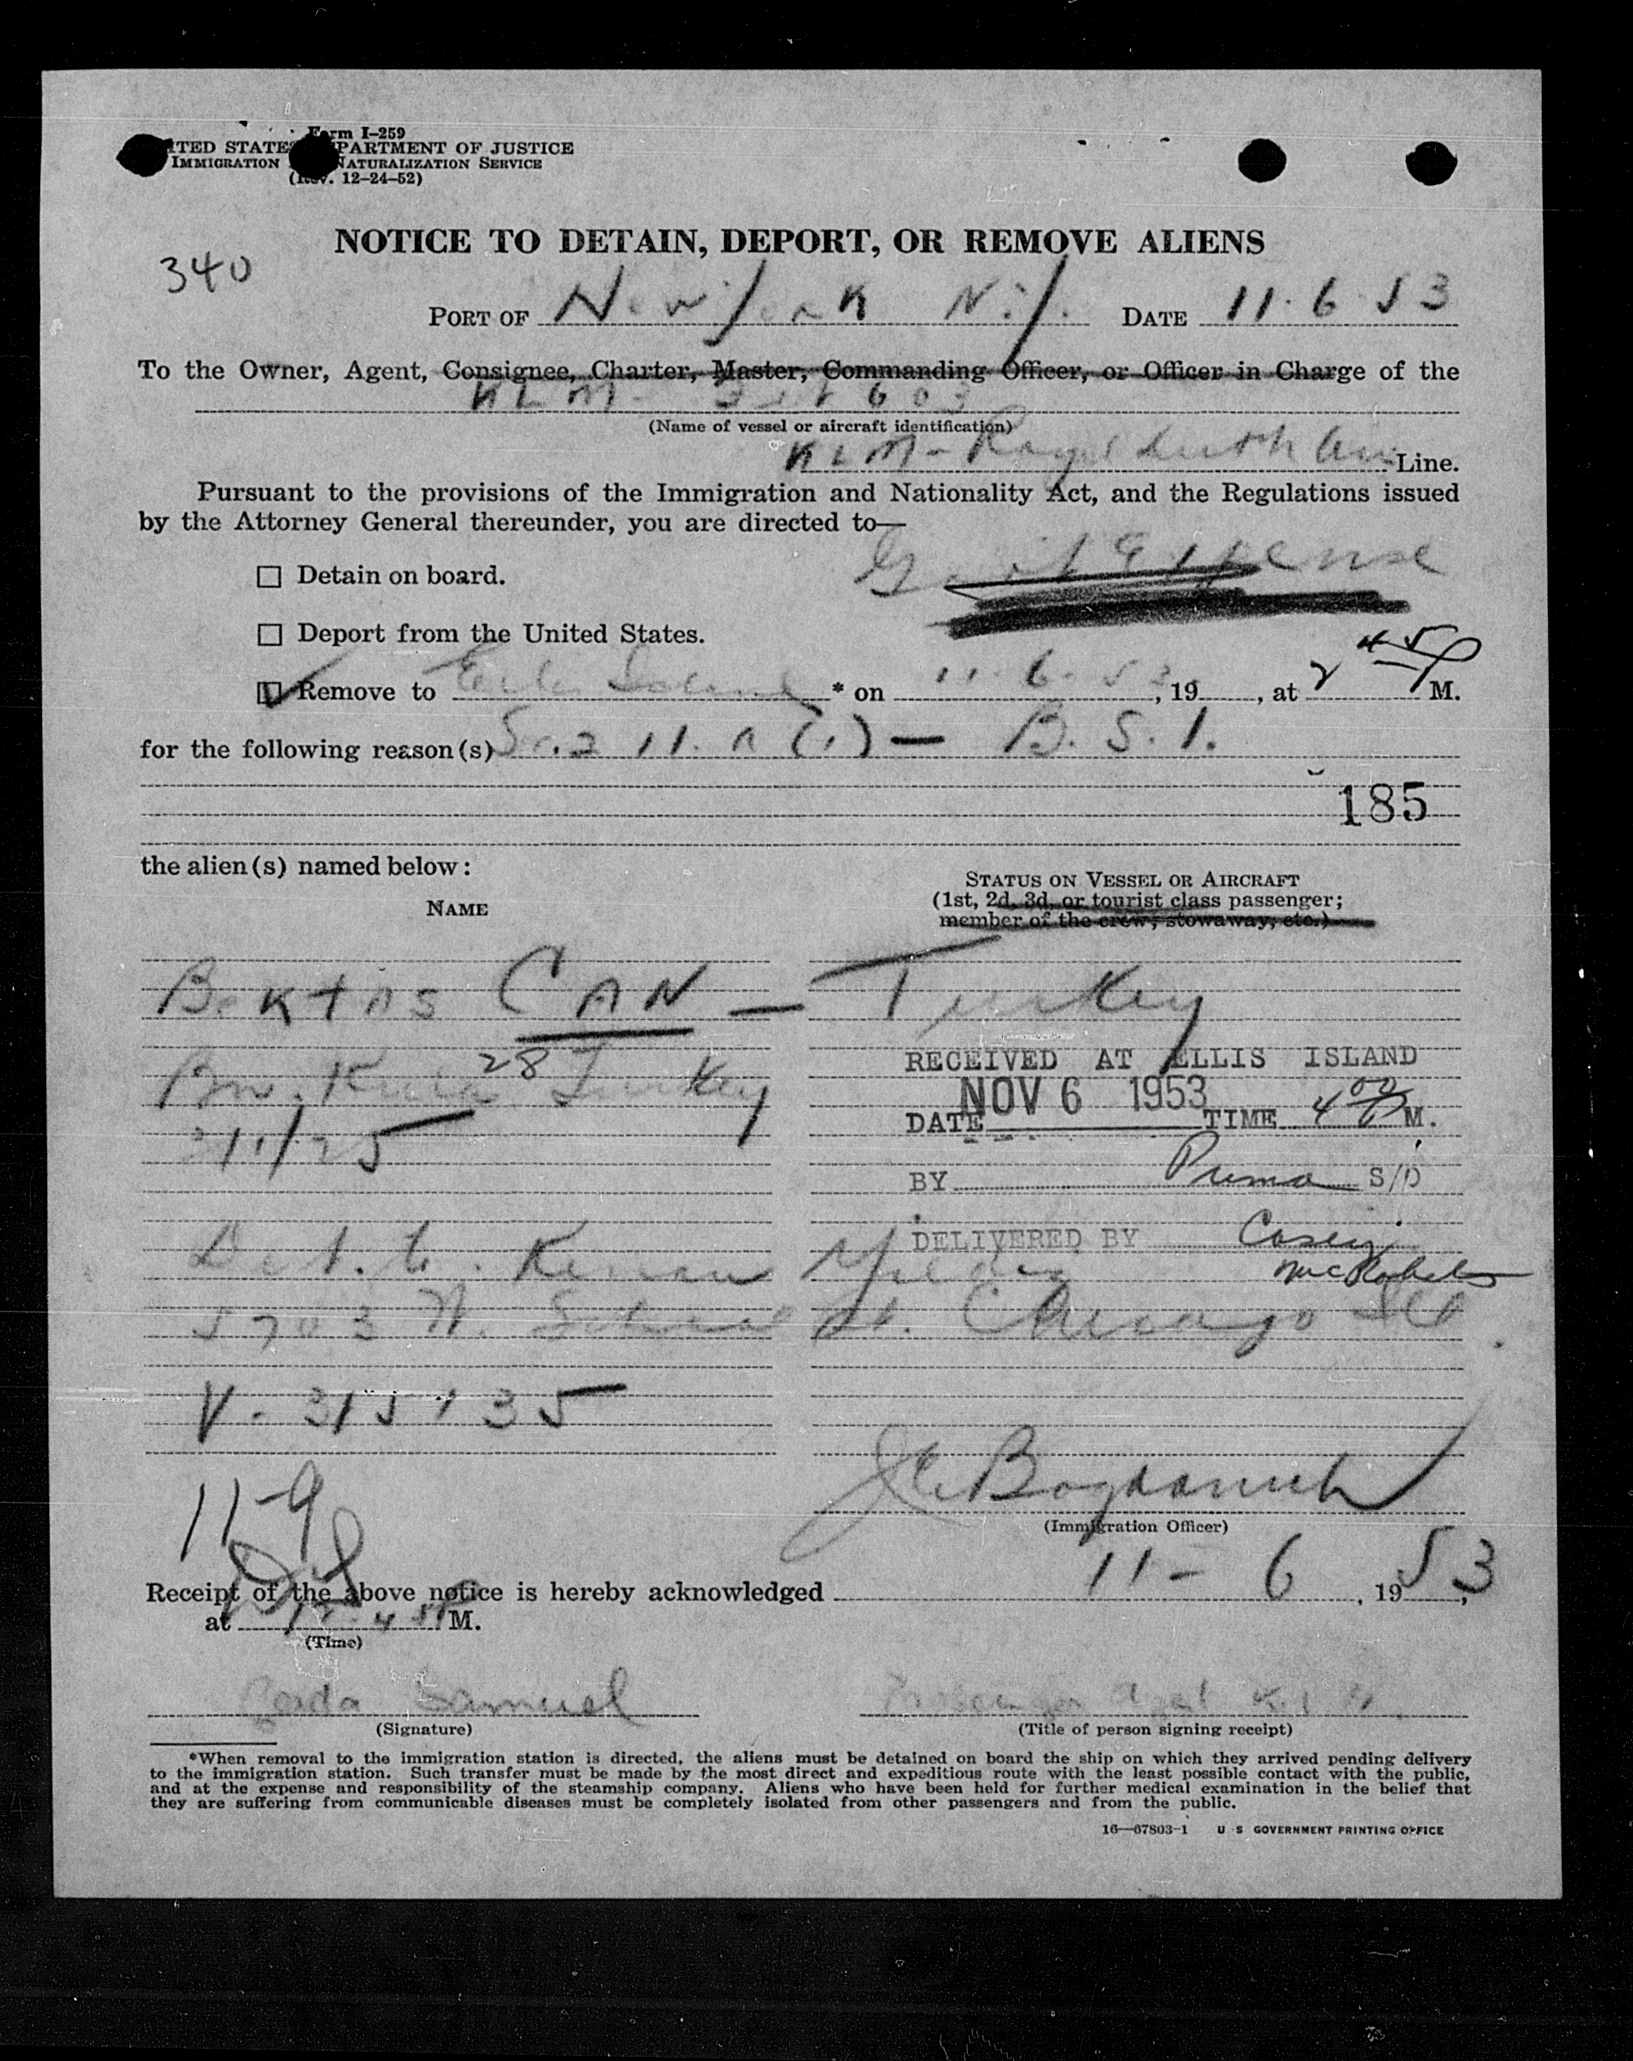 Form I-259
ITED STATES PARTMENT OF JUSTICE
IMMIGRATION NATURALIZATION SERVICE
(Rev. 12-24-52)
NOTICE TO DETAIN, DEPORT, OR REMOVE ALIENS
340
PORT OF New York N.Y. DATE 11.6.53
To the Owner, Agent, Consignee, Charter, Master, Commanding Officer, or Officer in Charge of the
KLM- 603
(Name of vessel or aircraft identification)
KLM - Royal Dutch Air Line.
Pursuant to the provisions of the Immigration and Nationality Act, and the Regulations issued
by the Attorney General thereunder, you are directed to—
Gov't Expense
☐ Detain on board.
☐ Deport from the United States.
☑ Remove to Ellis Island * on 11.6.53, 19, at 2 45 P M.
for the following reason(s) Sec. 2 11. a (1) — B. S. I.
185
the alien(s) named below:
STATUS ON VESSEL OR AIRCRAFT
(1st, 2d, 3d, or tourist class passenger;
member of the crew; stowaway, etc.)
NAME
Bektas CAN — Turkey
28 Turkey
RECEIVED AT ELLIS ISLAND
DATE NOV 6 1953 TIME 4 00 P M.
/1/25
BY Prima S/D
DELIVERED BY Casey
McRoberts
Dest. to. Kenan Yildiz
5703 W. School St. Chicago Ill
V. 315135
11-9
J C Bogdanich
(Immigration Officer)
Receipt of the above notice is hereby acknowledged 11 - 6, 1953,
at 12 45 P M.
(Time)
Samuel
Passenger Agent KLM.
(Signature)
(Title of person signing receipt)
*When removal to the immigration station is directed, the aliens must be detained on board the ship on which they arrived pending delivery
to the immigration station. Such transfer must be made by the most direct and expeditious route with the least possible contact with the public,
and at the expense and responsibility of the steamship company. Aliens who have been held for further medical examination in the belief that
they are suffering from communicable diseases must be completely isolated from other passengers and from the public.
16—67803-1 U S GOVERNMENT PRINTING OFFICE